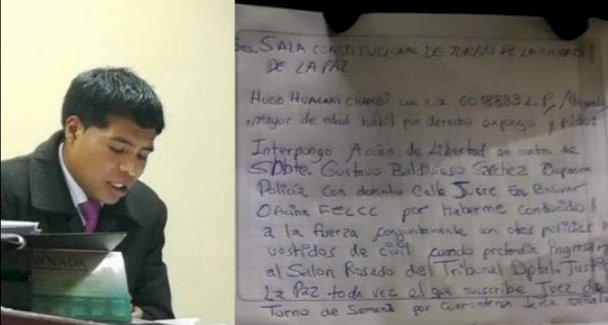 Sres. SALA CONSTITUCIONAL DE TURNO DE LA CIUDAD
DE LA PAZ
HUGO HUACANI CHAMBI con C.I. 6018883 L.P. Abogado
mayor de edad hábil por derecho expongo y pido:
Interpongo Acción de Libertad en contra de
Sbtte. Gustavo Baldivieso
Policia con domicilio Calle Sucre Esq Bolivar
Oficina FELCC por haberme conducido
a la fuerza conjuntamente con otros policias
vestidos de civil cuando pretendia ingresar
al Salon Rosado del Tribunal Dptal. Justicia
La Paz toda vez el que suscribe Juez de
Turno de Semana por cuarentena